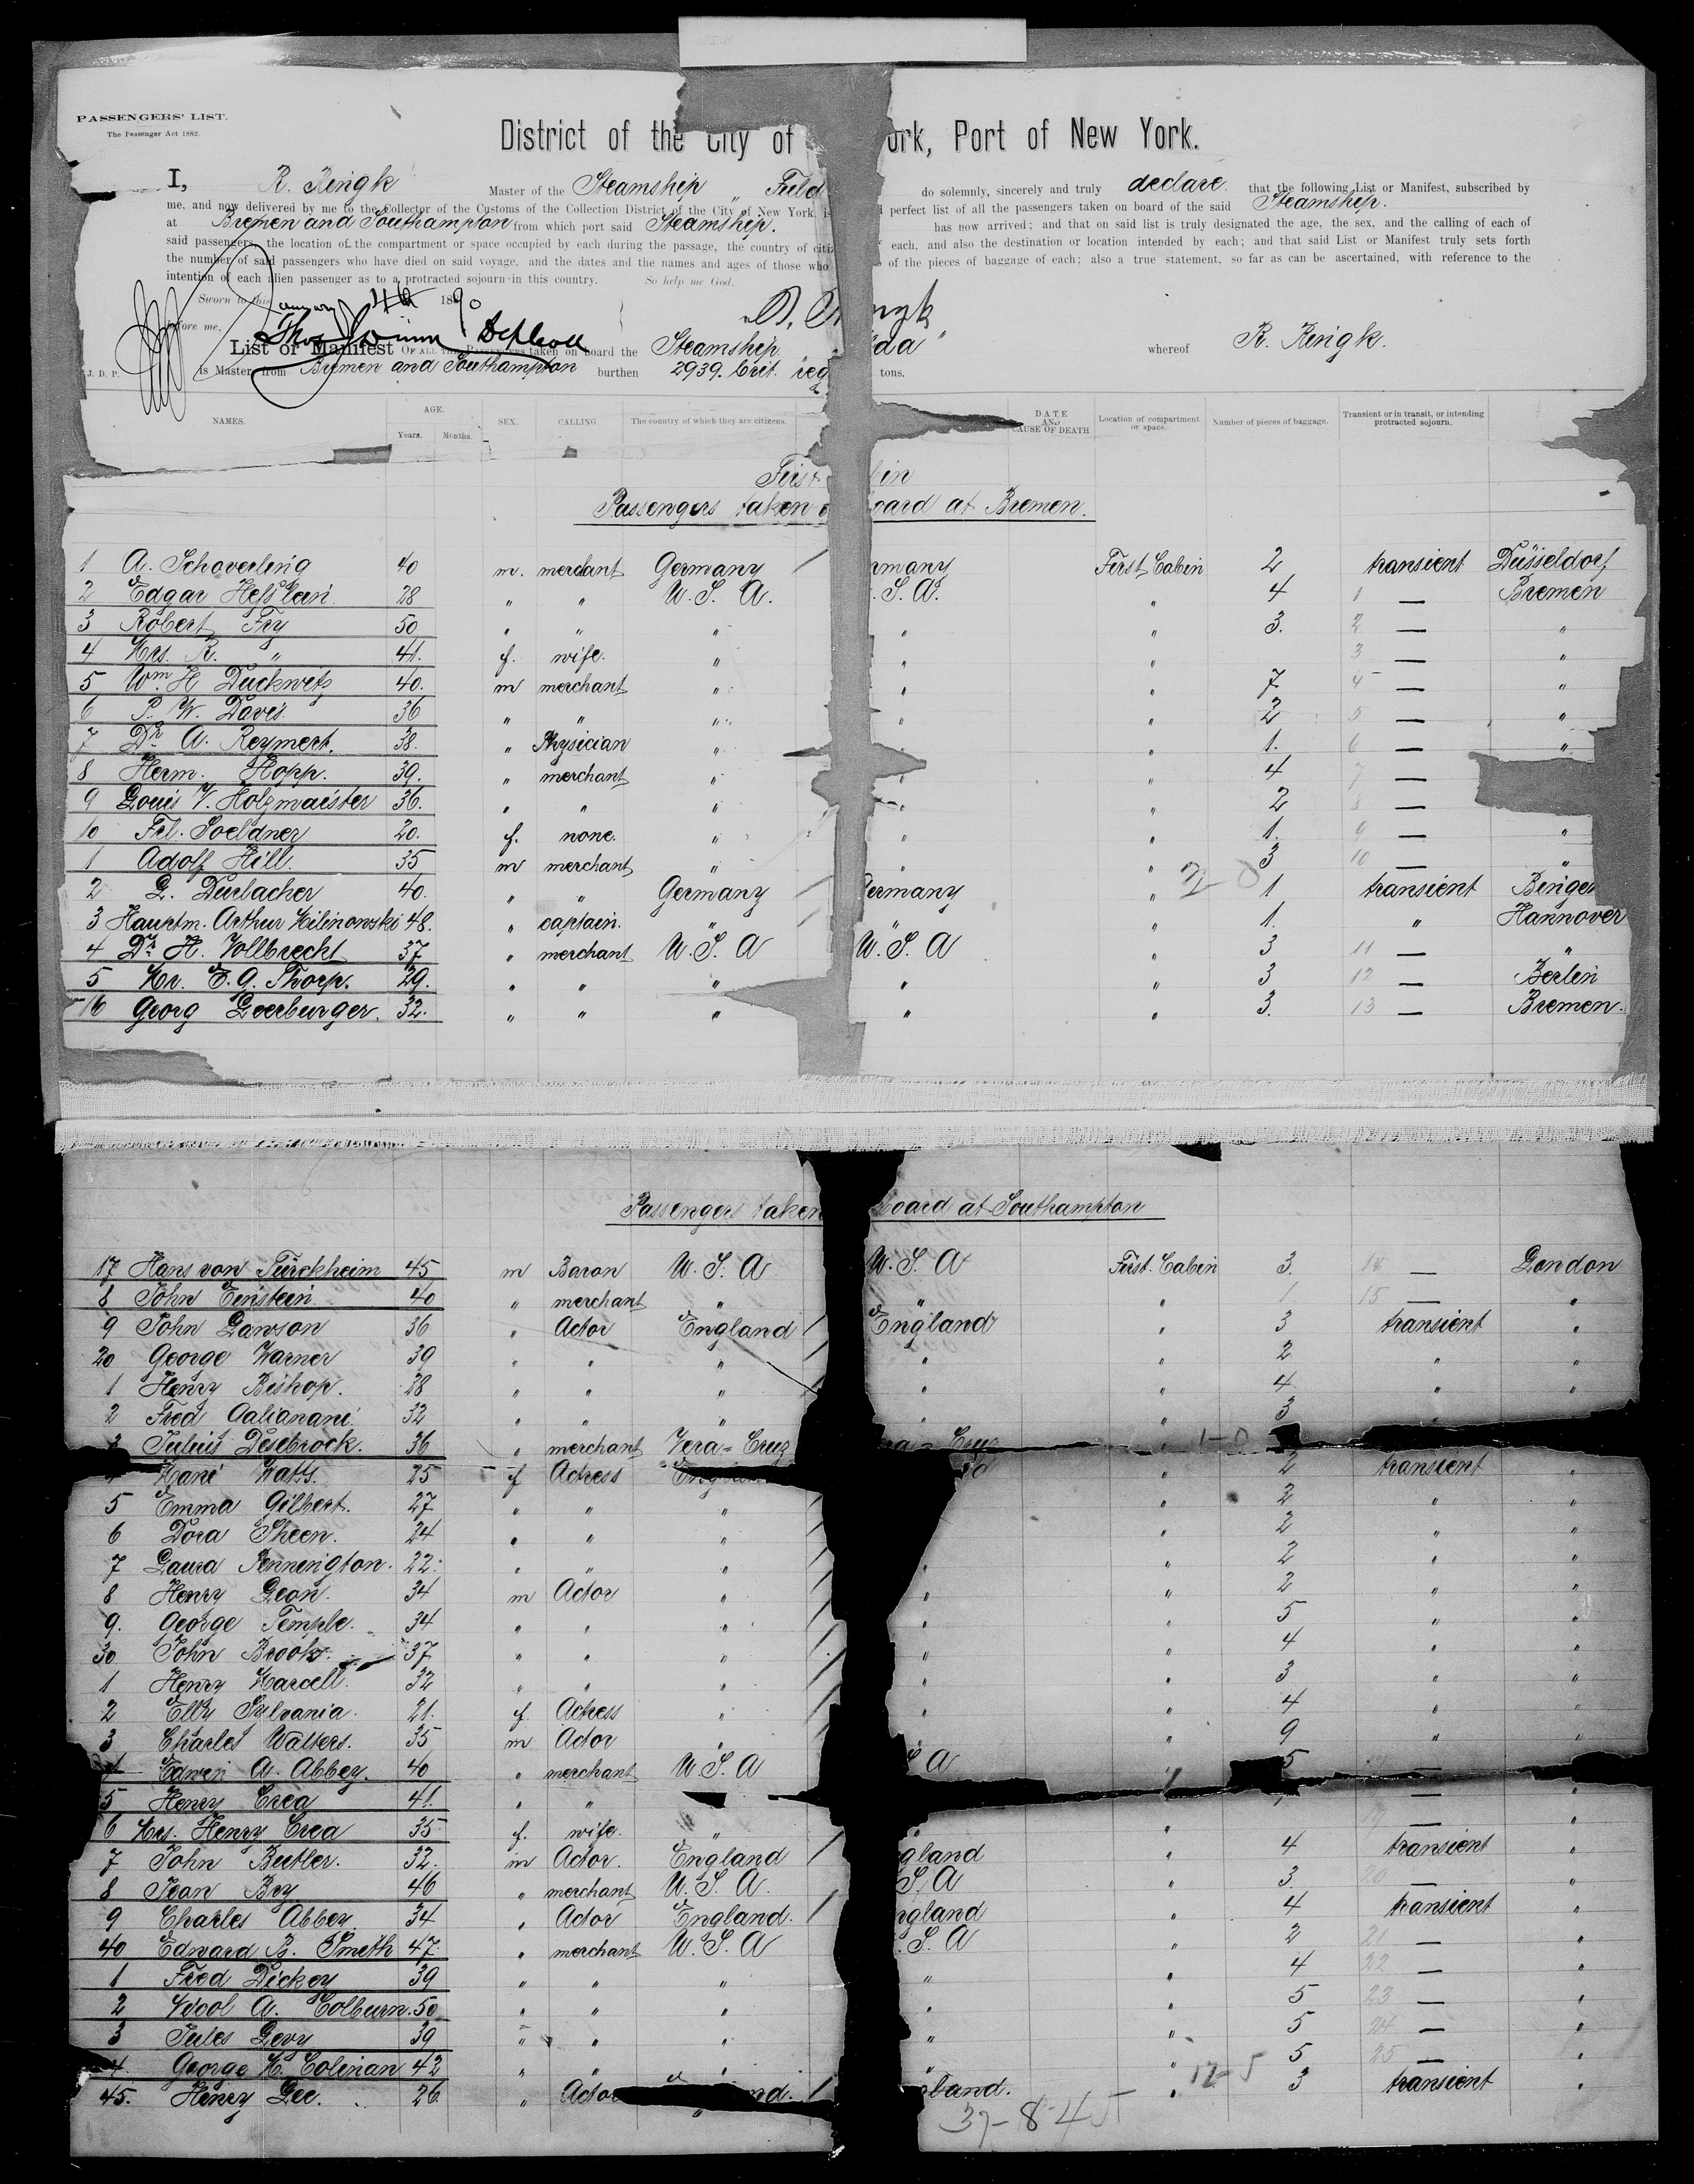 PASSENGERS' LIST.
The Passenger Act 1882.
District of the City of ork, Port of New York.
I, R. Ringk Master of the Steamship „ Fuld do solemnly, sincerely and truly declare that the following List or Manifest, subscribed by
me, and now delivered by me to the Collector of the Customs of the Collection District of the City of New York, is perfect list of all the passengers taken on board of the said Steamship.
at Bremen and Southampton from which port said Steamship. has now arrived; and that on said list is truly designated the age, the sex, and the calling of each of
said passengers, the location of the compartment or space occupied by each during the passage, the country of citiz each, and also the destination or location intended by each; and that said List or Manifest truly sets forth
the number of said passengers who have died on said voyage, and the dates and the names and ages of those who of the pieces of baggage of each; also a true statement, so far as can be ascertained, with reference to the
intention of each alien passenger as to a protracted sojourn in this country. So help me God.
Sworn to this 4th 1890
before me,
List or Manifest OF ALL THE PASSENGERS taken on board the Steamship da" whereof R. Ringk.
J. D. P. is Master, from Bremen and Southampton burthen 2939. Brit. reg tons.
NAMES. AGE. Years. Months. SEX. CALLING. The country of which they are citizens. DATE AND CAUSE OF DEATH Location of compartment or space. Number of pieces of baggage. Transient or in transit, or intending protracted sojourn.
First bin
Passengers taken o oard at Bremen.
1 A. Schoverling 40 m. merchant Germany / rmany First Cabin 2 transient Düsseldorf
2 Edgar Hesslein 28 " " U. S. A. . S. A. " 4 1 — Bremen
3 Robert Fry 50 " " " " " 3. 2 — "
4 Mrs. R. " 41. f. wife. " " " 3 — "
5 Wm. H Duckwitz 40. m merchant " " " 7 4 — "
6 P. W. Davis 36 " " " " " 2 5 — "
7 Dr. A. Reymert. 38. " Physician " " 1. 6 — "
8 Herm. Hopp. 39. " merchant " " " 4 7 —
9 Louis V. Holzmaister 36. " " " " " 2 8 —
10 Frl. Soeldner 20. f. none. " " " 1. 9 — "
1 Adolf Hill. 35 m merchant " " " 3 10 — "
2 L. Durlacher 40. " " Germany / ermany " 2-0 1 transient Bingen
3 Hauptm. Arthur Kilinowski 48. " captain. " " " 1. " Hannover
4 Dr. H. Vollbrecht 37 " merchant U. S. A U. S. A " 3 11 — "
5 Mr. E. G. Thorp. 29. " " " " " 3 12 — Berlin
16 Georg Loerburger. 32. " " " " " 3. 13 — Bremen.
Passengers taken board at Southampton
17 Hans von Türckheim 45 m Baron U. S. A U. S. A First. Cabin 3. 14 — London
8 John Einstein 40 " merchant " " " 1. 15 — "
9 John Lawson 36 " Actor England / England " 3 transient "
20 George Warner 39 " " " " " 2 " "
1 Henry Bishop. 28 " " " " " 4 " "
2 Fred Galianani. 32 " " " " " 3 "
3 Julius Desebrock. 36 " merchant Vera-Cruz ra-Cruz " 1-0
Mani Watts. 25 f Actress Englan " 2 transient "
5 Emma Gilbert. 27 " " " / " 2 " "
6 Dora Sheen. 24 " " " / " 2 " "
7 Laura Pennington. 22. " " " / " " 2 " "
8 Henry Leon. 34 m Actor " / " " 2 " "
9. George Temple. 34 " " " / " " 5 " "
30 John Brooks. 37 " " " / " " 4 " "
1 Henry Marcell. 32 " " " / " " 3 " "
2 Elly Sylvania. 21. f. Actress " / " " 4 " "
3 Charles Walters. 35 m Actor " / " " 9 " "
4 Edwin A. Abbey. 40 " merchant U. S. A S. A " 5
5 Henry Crea 41. " " — "
6 Mrs. Henry Crea 35 f. wife. " " " — "
7 John Butler. 32. m Actor. England gland " 4 transient "
8 Jean Bry 46 " merchant U. S. A. S. A " 3. 20 — "
9 Charles Abbey. 34 " Actor England. / ngland " 4 transient "
40 Edward B. Smith 47. " merchant U. S. A . S. A " 2 21 — "
1 Fred Dickey 39 " " " " " 4 22 — "
2 Nicol A. Colburn. 50 " " " " " 5 23 — "
3 Jules Levy 39 " " " " " 5 24 — "
4 George W. Colman 42 " " " " " 5 25 — "
45. Henry Lee. 26 " Actor nd. / gland. " 12-5 3 transient "
37-8-45